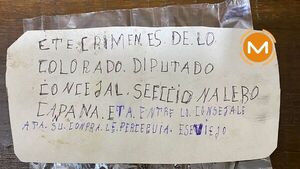 ETE CRIMEN ES. DE. LO
COLORADO. DIPUTADO
CONCEJAL. SECCIONALERO
CAPANA. ETA. ENTRE LO. CONSEJALE
ATA. SU. CONPRA. LE. PERCEGUIA. ESE VIEJO
M